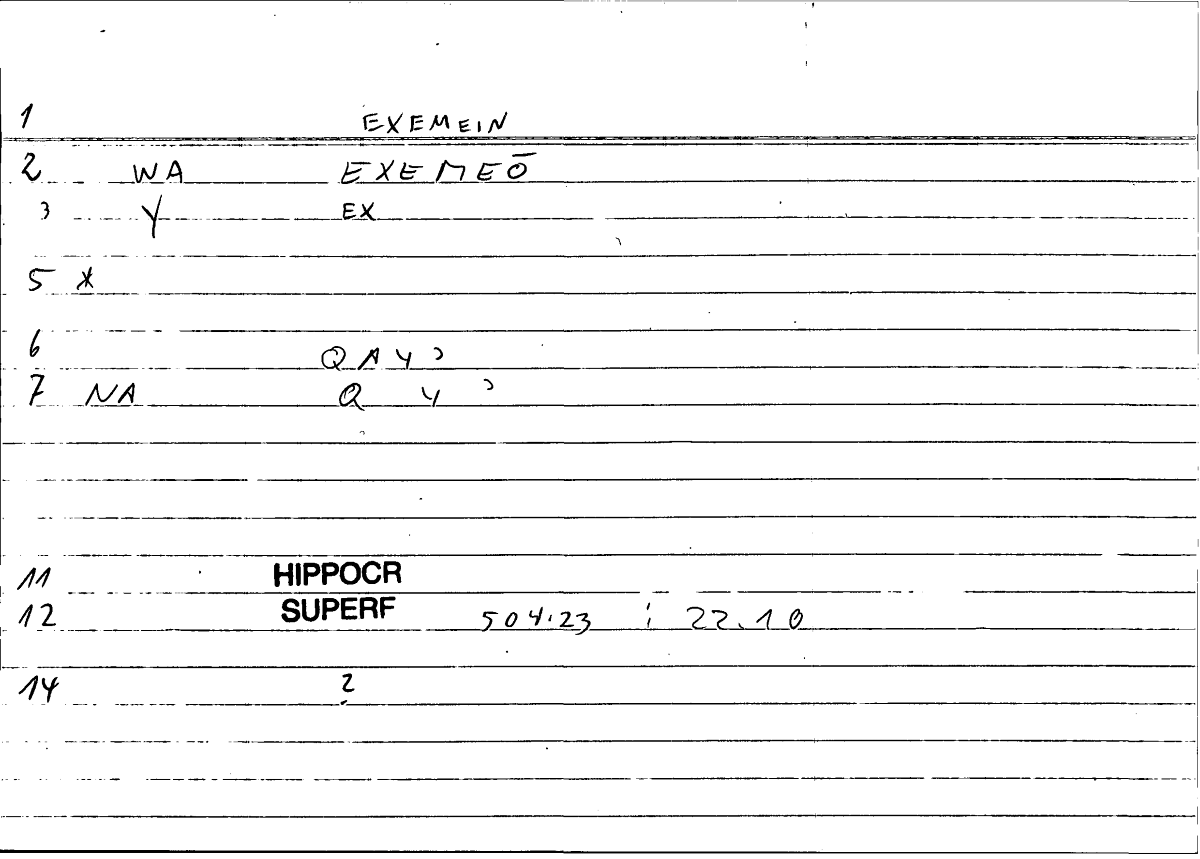 1 EXEMEIN
2 WA EXEMEŌ
3 Y EX
5 *
6 QAY
7 NA Q Y
11 HIPPOCR
12 SUPERF 504.23 ; 22.10
14 2